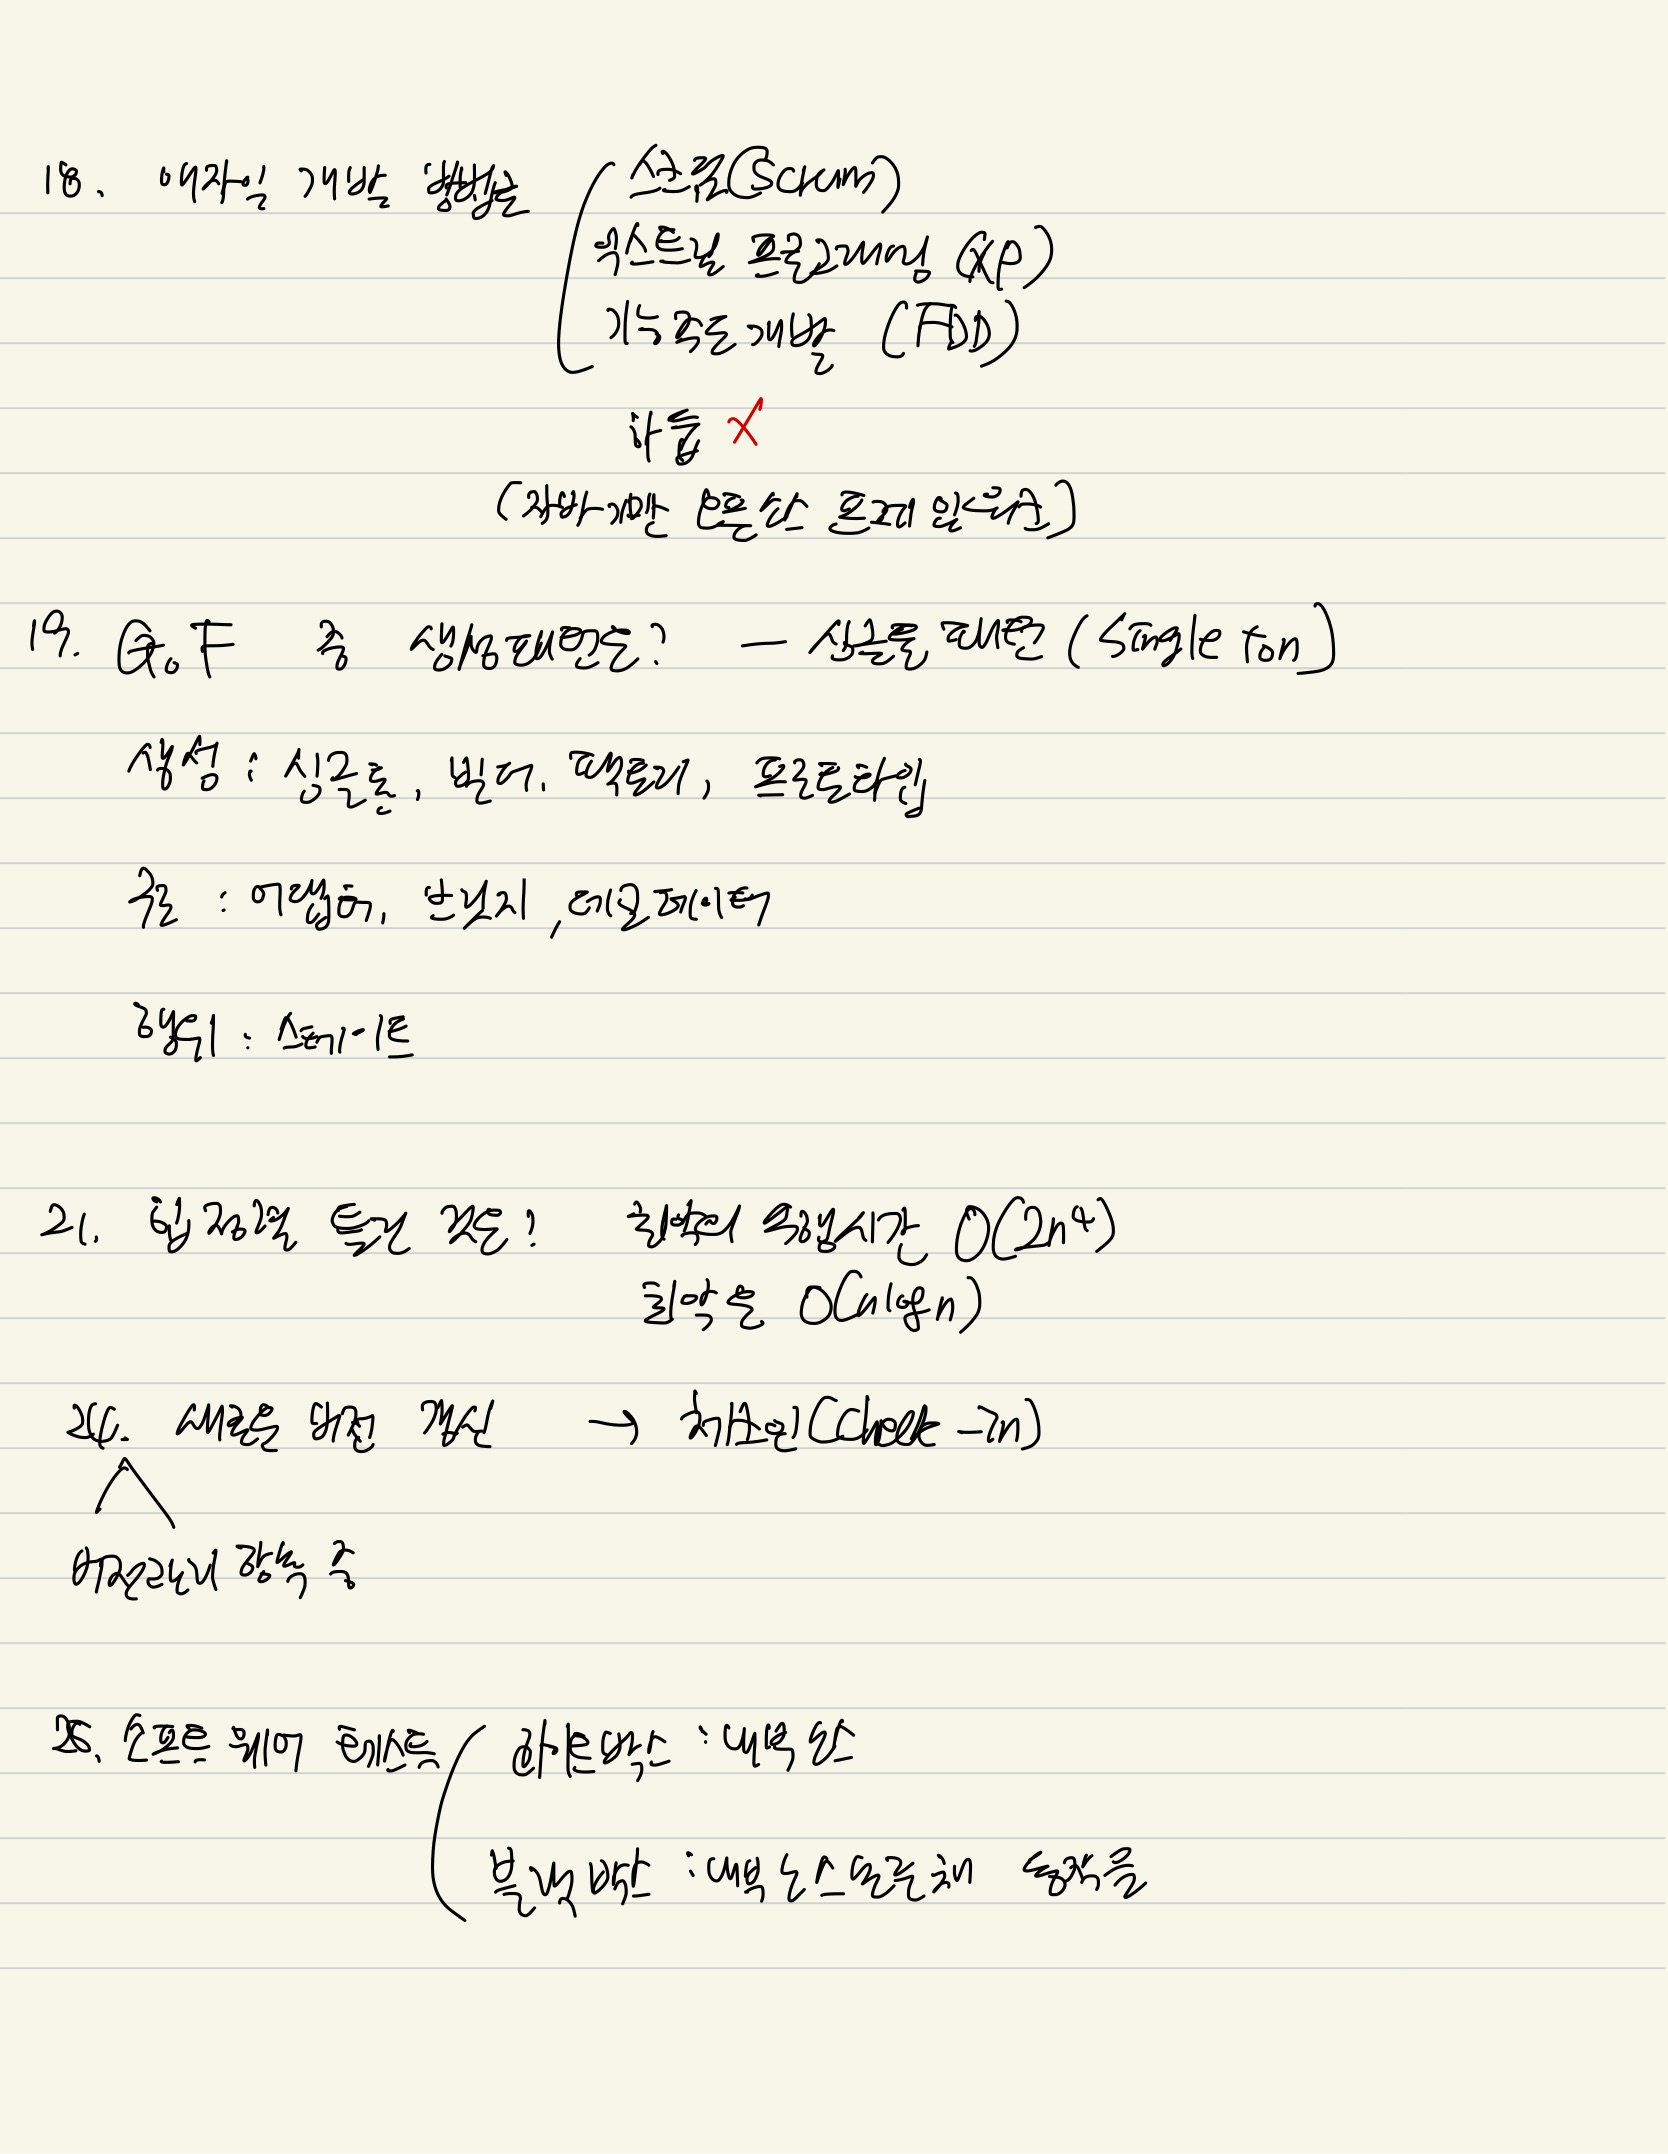 18. 애자일 개발 방법론
스크럼(Scrum)
익스트림 프로그래밍 (XP)
기능주도개발 (FDD)
하둡 X
(자바기반 오픈소스 프레임워크)
19. GoF 중 생성패턴은? — 싱글톤 패턴 (Singleton)
생성 : 싱글톤, 빌더, 팩토리, 프로토타입
구조 : 어댑터, 브릿지, 데코레이터
행위 : 스테이트
21. 힙정렬 틀린 것은? 최악의 수행시간 O(2n⁴)
최악은 O(nlogn)
24. 새로운 버전 갱신 → 체크인(Check-In)
버전관리 항목 중
25. 소프트웨어 테스트
화이트박스 : 내부
블랙박스 : 내부 모른채 동작을